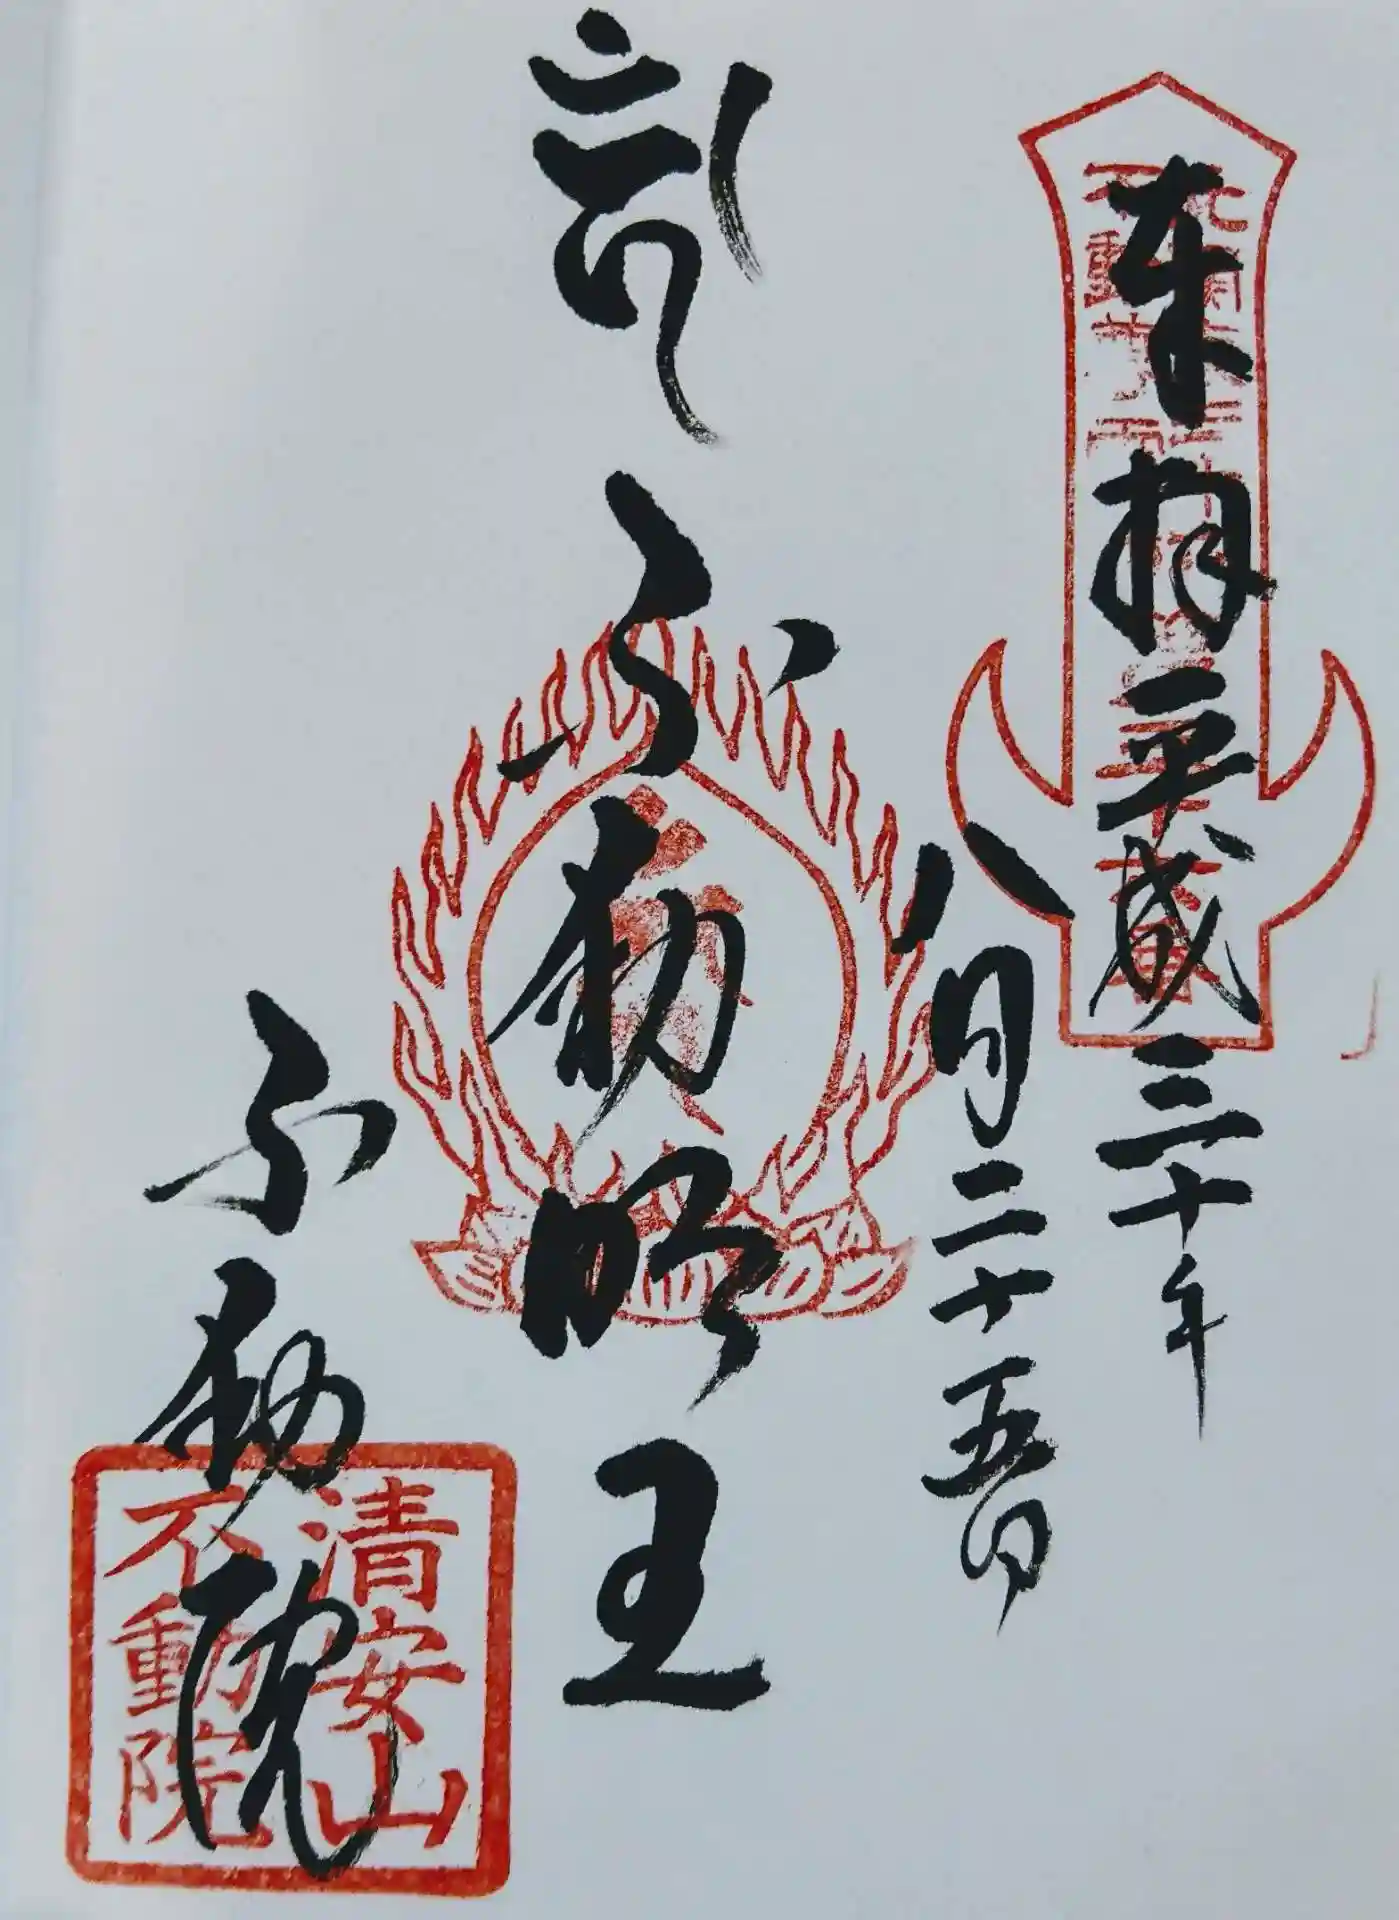 奉拝
平成三十年
八月二十五日
不動明王
不動院
清安山
不動院